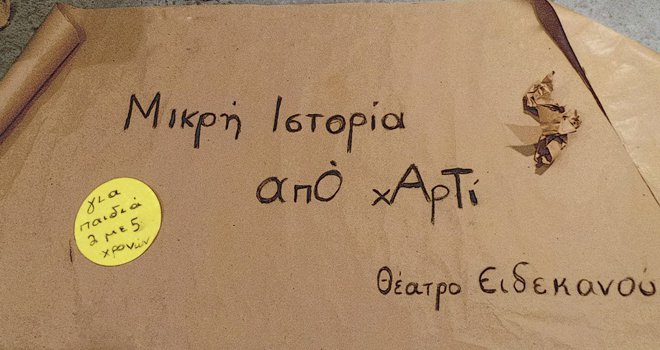 Μικρή Ιστορία
από χΑρΤί
για
παιδιά
2 με 5
χρονών
Θέατρο Ειδεκανού